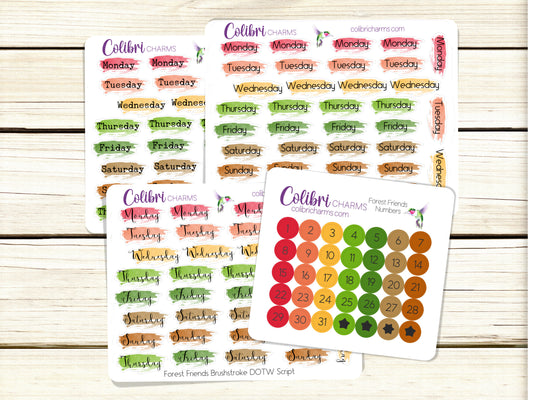 Colibri CHARMS
Monday Monday
Tuesday Tuesday
Wednesday Wednes
Thursday Thursday
Friday Friday
Saturday Saturday
Sunday
Colibri CHARMS
colibricharms.com
Monday Monday Monday Monday Monday
Tuesday Tuesday Tuesday Tuesday
Wednesday Wednesday Wednesday Wednesday
Thursday Thursday Thursday Thursday Tuesday
Friday Friday Friday Friday
Saturday Saturday Saturday Saturday Wednesday
Sunday Sunday Sunday Sunday
Colibri CHARMS
Monday Monday Monday
Tuesday Tuesday Tuesday
Wednesday Wednesday
Thursday Thursday
Friday Friday
Saturday Saturday
Sunday Sunday Sunday
Thursday Friday Saturday Sunday
Forest Friends Brushstroke DOTW Script
Colibri CHARMS
colibricharms.com
Forest Friends
Numbers
1 2 3 4 5 6 7
8 9 10 11 12 13 14
15 16 17 18 19 20 21
22 23 24 25 26 27 28
29 30 31